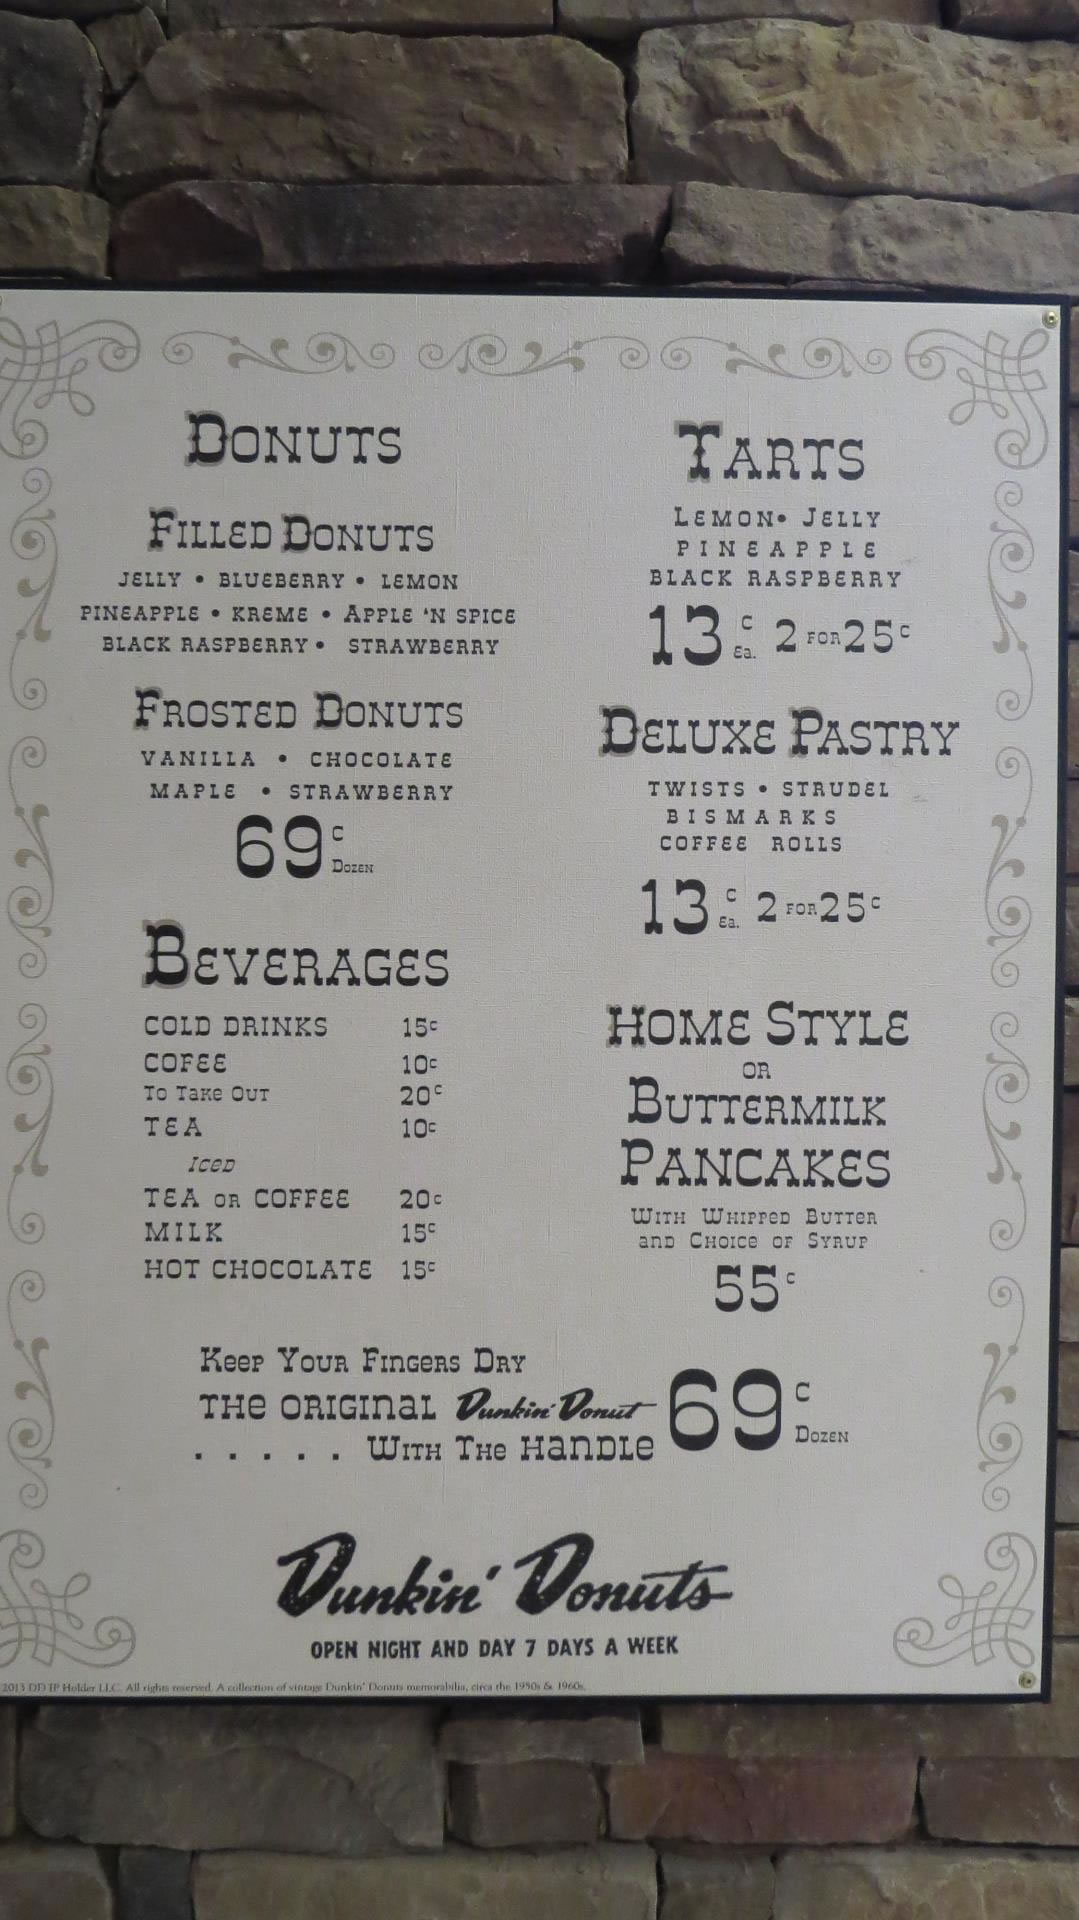 DONUTS
FILLED DONUTS
JELLY • BLUEBERRY • LEMON
PINEAPPLE • KREME • APPLE 'N SPICE
BLACK RASPBERRY • STRAWBERRY
FROSTED DONUTS
VANILLA • CHOCOLATE
MAPLE • STRAWBERRY
69c DOZEN
BEVERAGES
COLD DRINKS 15c
COFEE 10c
TO TAKE OUT 20c
TEA 10c
ICED
TEA OR COFFEE 20c
MILK 15c
HOT CHOCOLATE 15c
TARTS
LEMON• JELLY
PINEAPPLE
BLACK RASPBERRY
13c Ea. 2 FOR 25c
DELUXE PASTRY
TWISTS • STRUDEL
BISMARKS
COFFEE ROLLS
13c Ea. 2 FOR 25c
HOME STYLE
OR
BUTTERMILK
PANCAKES
WITH WHIPPED BUTTER
AND CHOICE OF SYRUP
55c
KEEP YOUR FINGERS DRY
THE ORIGINAL Dunkin' Donut
. . . . . WITH THE HANDLE
69c DOZEN
Dunkin' Donuts
OPEN NIGHT AND DAY 7 DAYS A WEEK
2013 DD IP Holder LLC. All rights reserved. A collection of vintage Dunkin' Donuts memorabilia, circa the 1950s & 1960s.